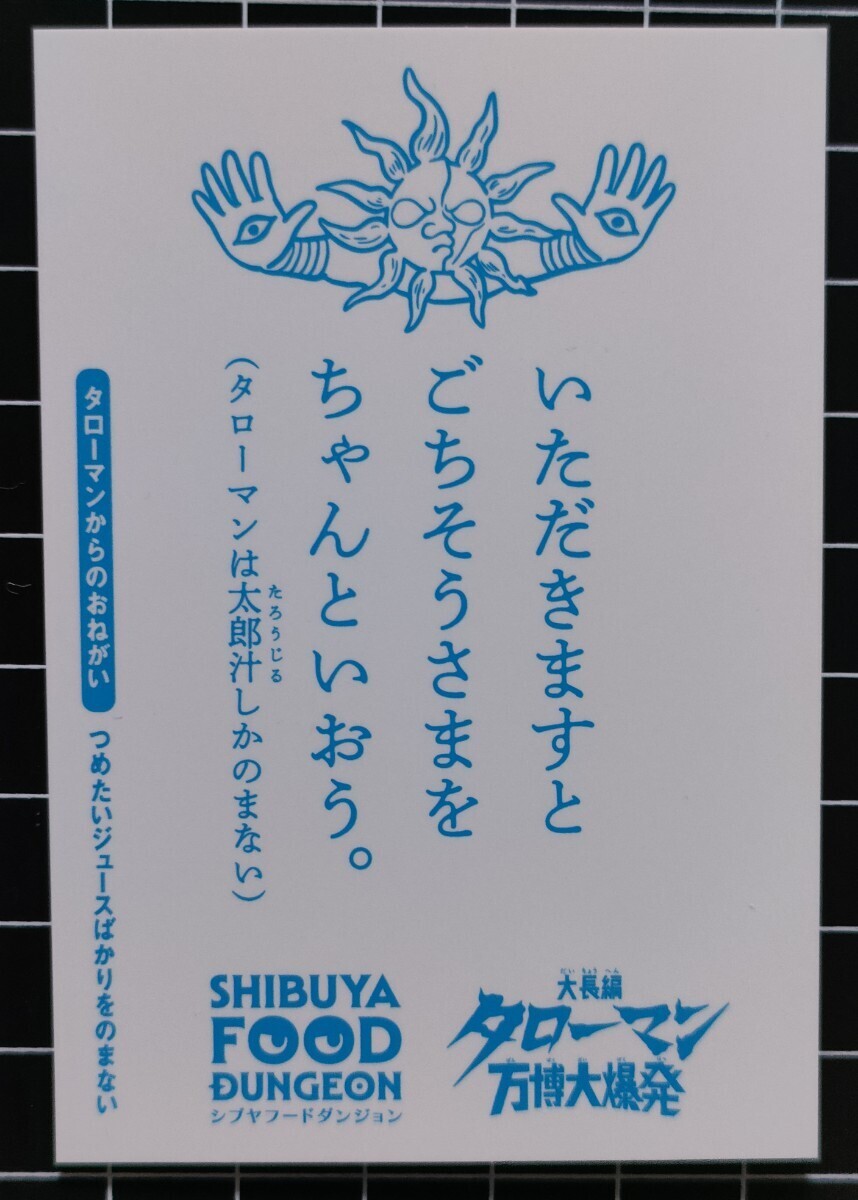 いただきますと
ごちそうさまを
ちゃんといおう。
（タローマンは太郎汁しかのまない）
たろうじる
タローマンからのおねがい
つめたいジュースばかりをのまない
SHIBUYA
FOOD
DUNGEON
シブヤフードダンジョン
だいちょうへん
大長編
タローマン
ばんぱくだいばくはつ
万博大爆発